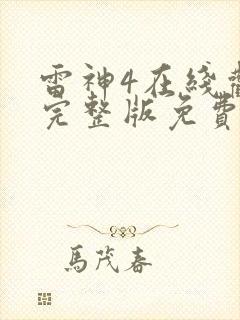 雷神4在綫
完整版免費
馬茂春